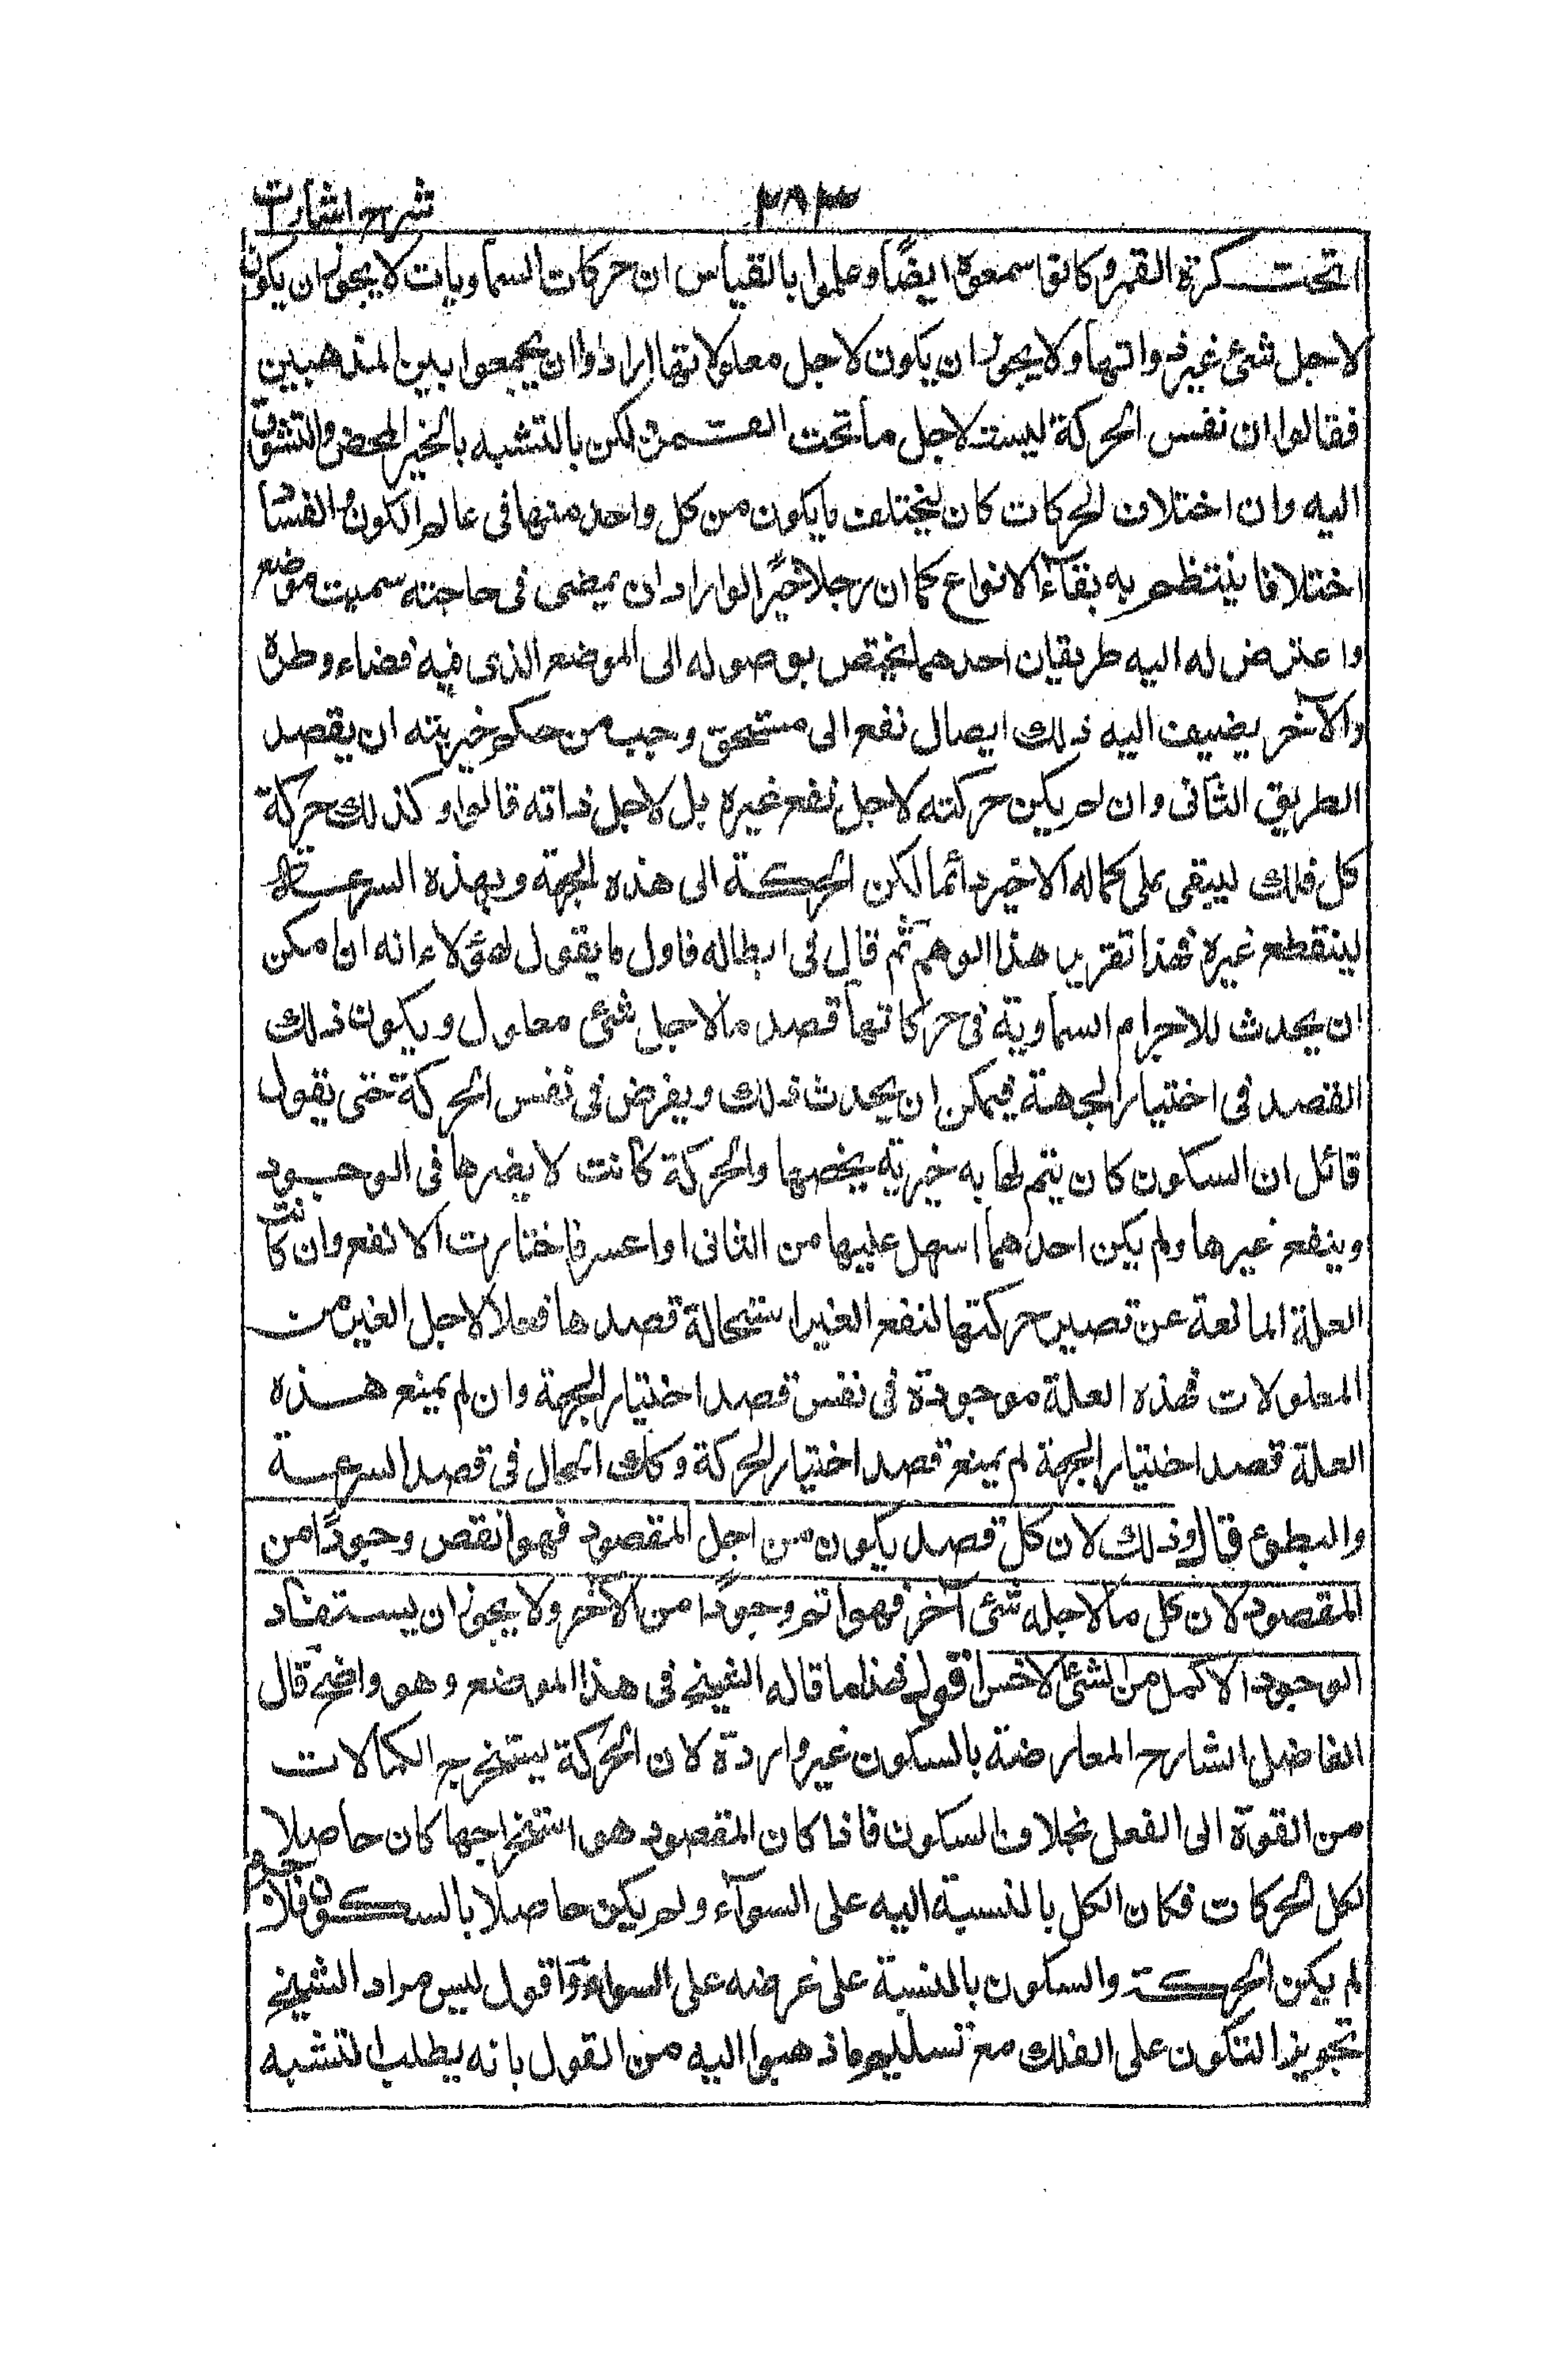 شرح اشارات
٣٨٣
تحت كرة القمر وكانوا سمعوه ايضًا وعلموا بالقياس ان حركات السماويات لا يجوز ان يكون
لاجل شئ غير ذواتها ولا يجوز ان يكون لاجل معلولاتها ارادوا ان يجمعوا بين المذهبين
فقالوا ان نفس الحركة ليست لاجل ما تحت القمر لكن بالتشبه بالخير المحض والتشوق
اليه وان اختلاف الحركات كان ليختلف ما يكون من كل واحد منها فى عالم الكون والفساد
اختلافا ينتظم به بقآء الانواع كما ان رجلا خيّرا لو اراد ان يمضى فى حاجته سميت موضع
واعترض له اليه طريقان احدهما يختص بوصوله الى الموضع الذى فيه قضاء وطره
والآخر يضيف اليه ذلك ايصال نفع الى مستحق وجب من حكم خيريته ان يقصد
الطريق الثانى وان لم يكن حركته لاجل نفع غيره بل لاجل ذاته قالوا وكذلك حركة
كل فلك ليبقى على كماله الاخير دائما لكن الحركة الى هذه الجهة وبهذه السرعة
لينتفع غيره فهذا تقرير هذا الوهم ثم قال فى ابطاله فاول ما يقول لهؤلاء انه ان امكن
ان يحدث للاجرام السماوية فى حركاتها قصد ما لاجل شئ معلول ويكون ذلك
القصد فى اختيار الجهة فيمكن ان يحدث ذلك ويفرض فى نفس الحركة حتى يقول
قائل ان السكون كان يتم لها به خيرية يخصها والحركة كانت لا يضرها فى الوجود
وينفع غيرها ولم يكن احدهما اسهل عليها من الثانى او اعسر فاختارت الانفع وان كانت
العلة المانعة عن تصيير حركتها لنفع الغير استحالة قصدها فعلا لاجل الغير من
المعلولات فهذه العلة موجودة فى نفس قصد اختيار الجهة وان لم يمنع هذه
العلة قصد اختيار الجهة لم يمنع قصد اختيار الحركة وكذلك الحال فى قصد السرعة
والبطوء قال وذلك لان كل قصد يكون من اجل المقصود فهو انقص وجودًا من
المقصود لان كل ما لاجله شئ آخر فهو اتم وجودًا من الآخر ولا يجوز ان يستفاد
الوجود الاكمل من الشئ الاخس اقول فهذا ما قاله الشيخ فى هذا الموضع وهو واضح قال
الفاضل الشارح المعارضة بالسكون غير واردة لان الحركة يستخرج الكمالات
من القوة الى الفعل بخلاف السكون فاذا كان المقصود هو استخراجها كان حاصلا
لكل الحركات فكان الكل بالنسبة اليه على السوآء ولم يكن حاصلا بالسكون فلا جرم
لم يكن الحركة والسكون بالنسبة على غرضه على السواء واقول ليس مراد الشيخ
تجويز السكون على الفلك مع تسليم ما ذهبوا اليه من القول بانه يطلب التشبه